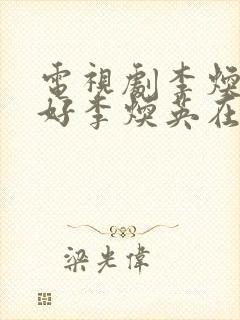 電視劇李煥
好李煥英在
梁光偉